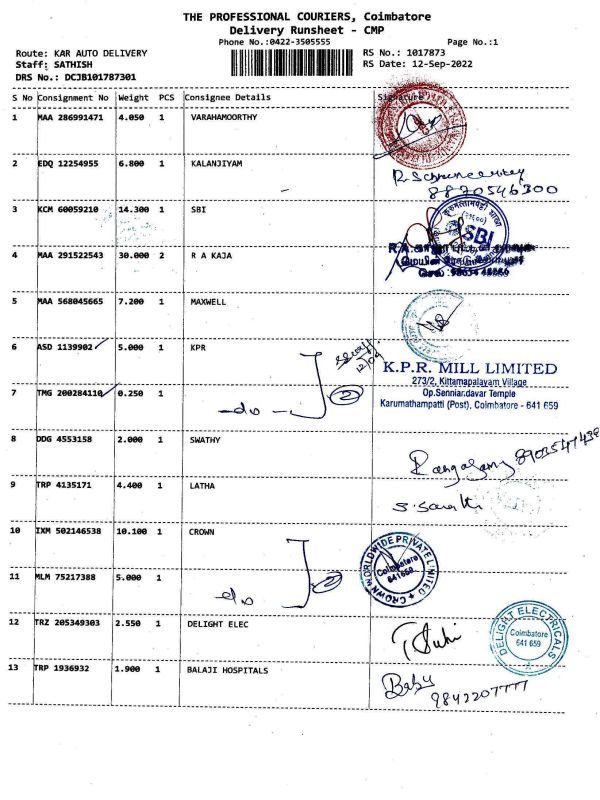 THE PROFESSIONAL COURIERS, Coimbatore
Delivery Runsheet - CMP
Phone No.:0422-3505555 Page No.:1
Route: KAR AUTO DELIVERY RS No.: 1017873
Staff: SATHISH RS Date: 12-Sep-2022
DRS No.: DCJB101787301
S No Consignment No Weight PCS Consignee Details Signature
1 MAA 286991471 4.050 1 VARAHAMOORTHY
2 EDQ 12254955 6.800 1 KALANJIYAM
8870546300
3 KCM 60059210 14.300 1 SBI
SBI
4 MAA 291522543 30.000 2 R A KAJA
5 MAA 568045665 7.200 1 MAXWELL
6 ASD 1139902 5.000 1 KPR
K.P.R. MILL LIMITED
273/2, Kittampalayam Village
7 TMG 200284110 0.250 1 -do- 2
Op.Senniandavar Temple
Karumathampatti (Post), Coimbatore - 641 659
8 DDG 4553158 2.000 1 SWATHY
Rangasamy
9 TRP 4135171 4.400 1 LATHA
10 IXM 502146538 10.100 1 CROWN
CROWN WORLDWIDE PRIVATE LIMITED
Coimbatore
641659
11 MLM 75217388 5.000 1 do 2
12 TRZ 205349303 2.550 1 DELIGHT ELEC
DELIGHT ELECTRICALS
Coimbatore
641 659
13 TRP 1936932 1.900 1 BALAJI HOSPITALS
Baby
9842207777